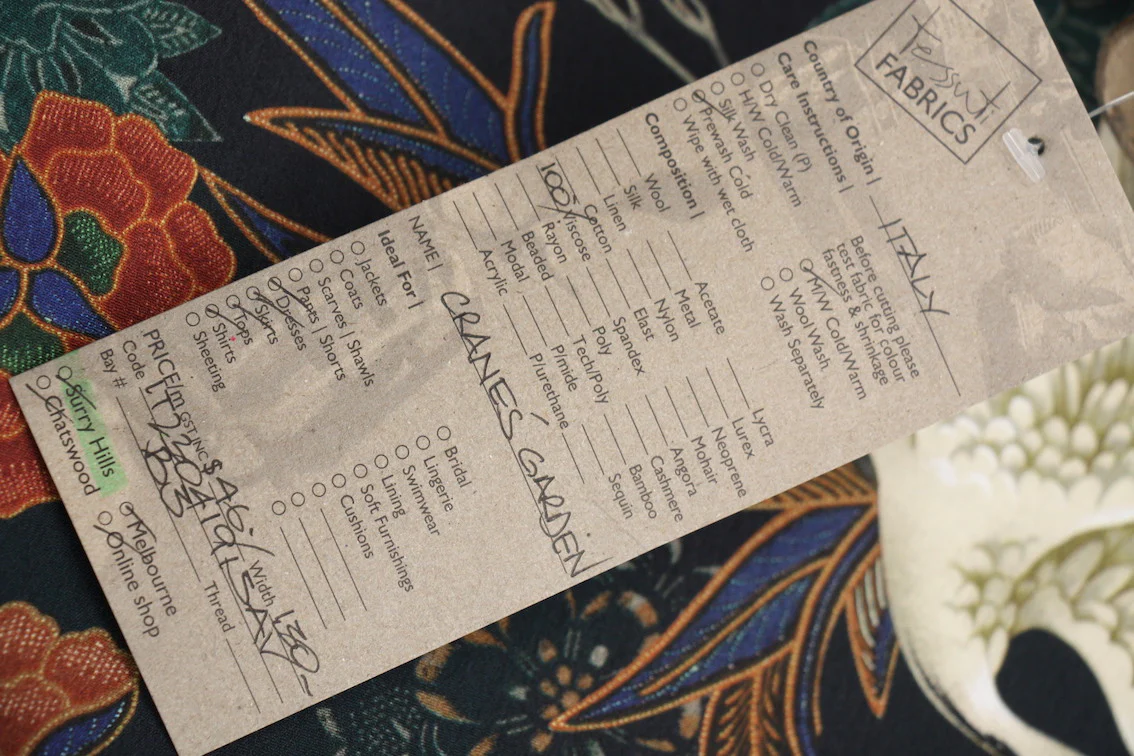 Tessuti
FABRICS
Country of Origin | ITALY
Care Instructions |
Dry Clean (P)
H/W Cold/Warm
Silk Wash
Prewash Cold
Wipe with wet cloth
Before cutting please
test fabric for colour
fastness & shrinkage
M/W Cold/Warm
Wool Wash
Wash Separately
Composition |
Wool
Silk
Linen
Cotton
100% Viscose
Rayon
Beaded
Modal
Acrylic
Acetate
Metal
Nylon
Elast
Spandex
Poly
Tech/Poly
P/mide
P/urethane
Lycra
Lurex
Neoprene
Mohair
Angora
Cashmere
Bamboo
Sequin
NAME | CRANES' GARDEN
Ideal For |
Jackets
Coats
Scarves | Shawls
Pants | Shorts
Dresses
Skirts
Tops
Shirts
Sheeting
Bridal
Lingerie
Swimwear
Lining
Soft Furnishings
Cushions
PRICE/m GST INC $ 46/ Width 139
Code
Bay # D3 Thread
Surry Hills
Chatswood
Melbourne
Online shop